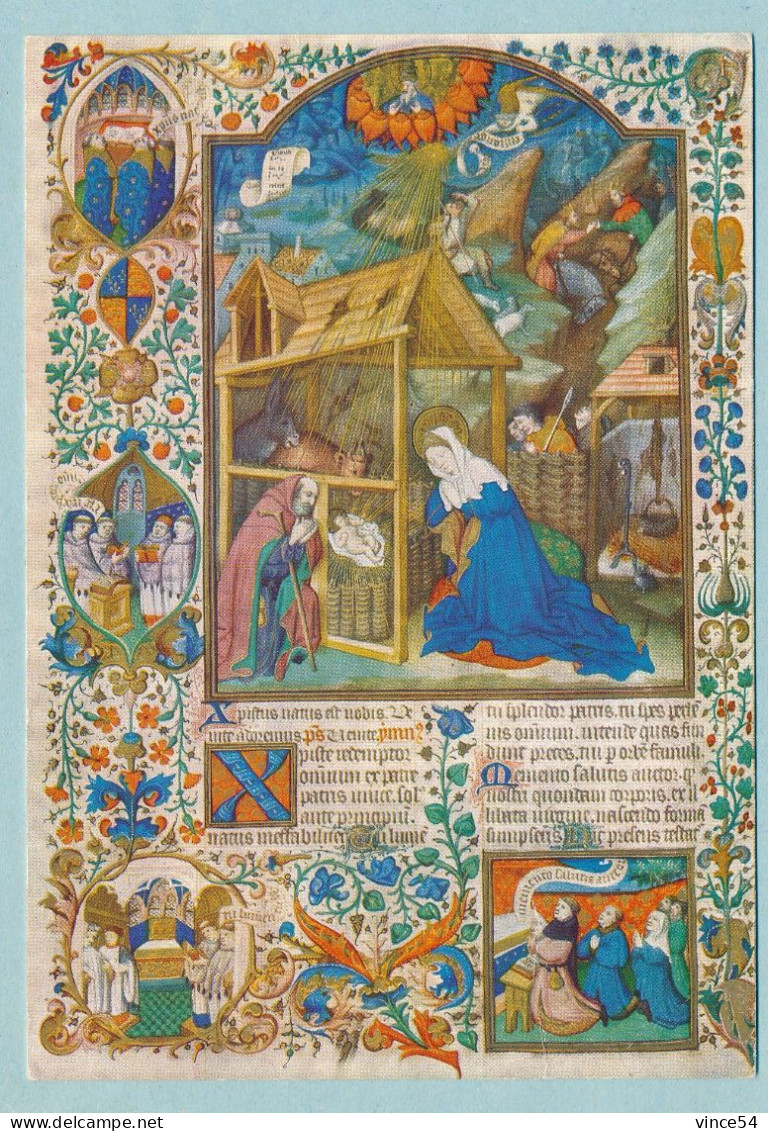 Xpistus natus est nobis Ve
nite adoremus ps Venite ymn⁹
Xpiste redemptor
omnium ex patre
patris unice. sol⁹
ante principiū.
natus ineffabiliter Tu lumē
tu splendor patris. tu spes perhē
nis omniū. intende quas fun
dunt preces. tui p orbē famuli.
Memento salutis auctor. q
nostri quondam corporis. ex il
libata virgine. nascendo formā
sumpseris Hic presens testat̄
memento salutis auctor
tu lumen
vince54